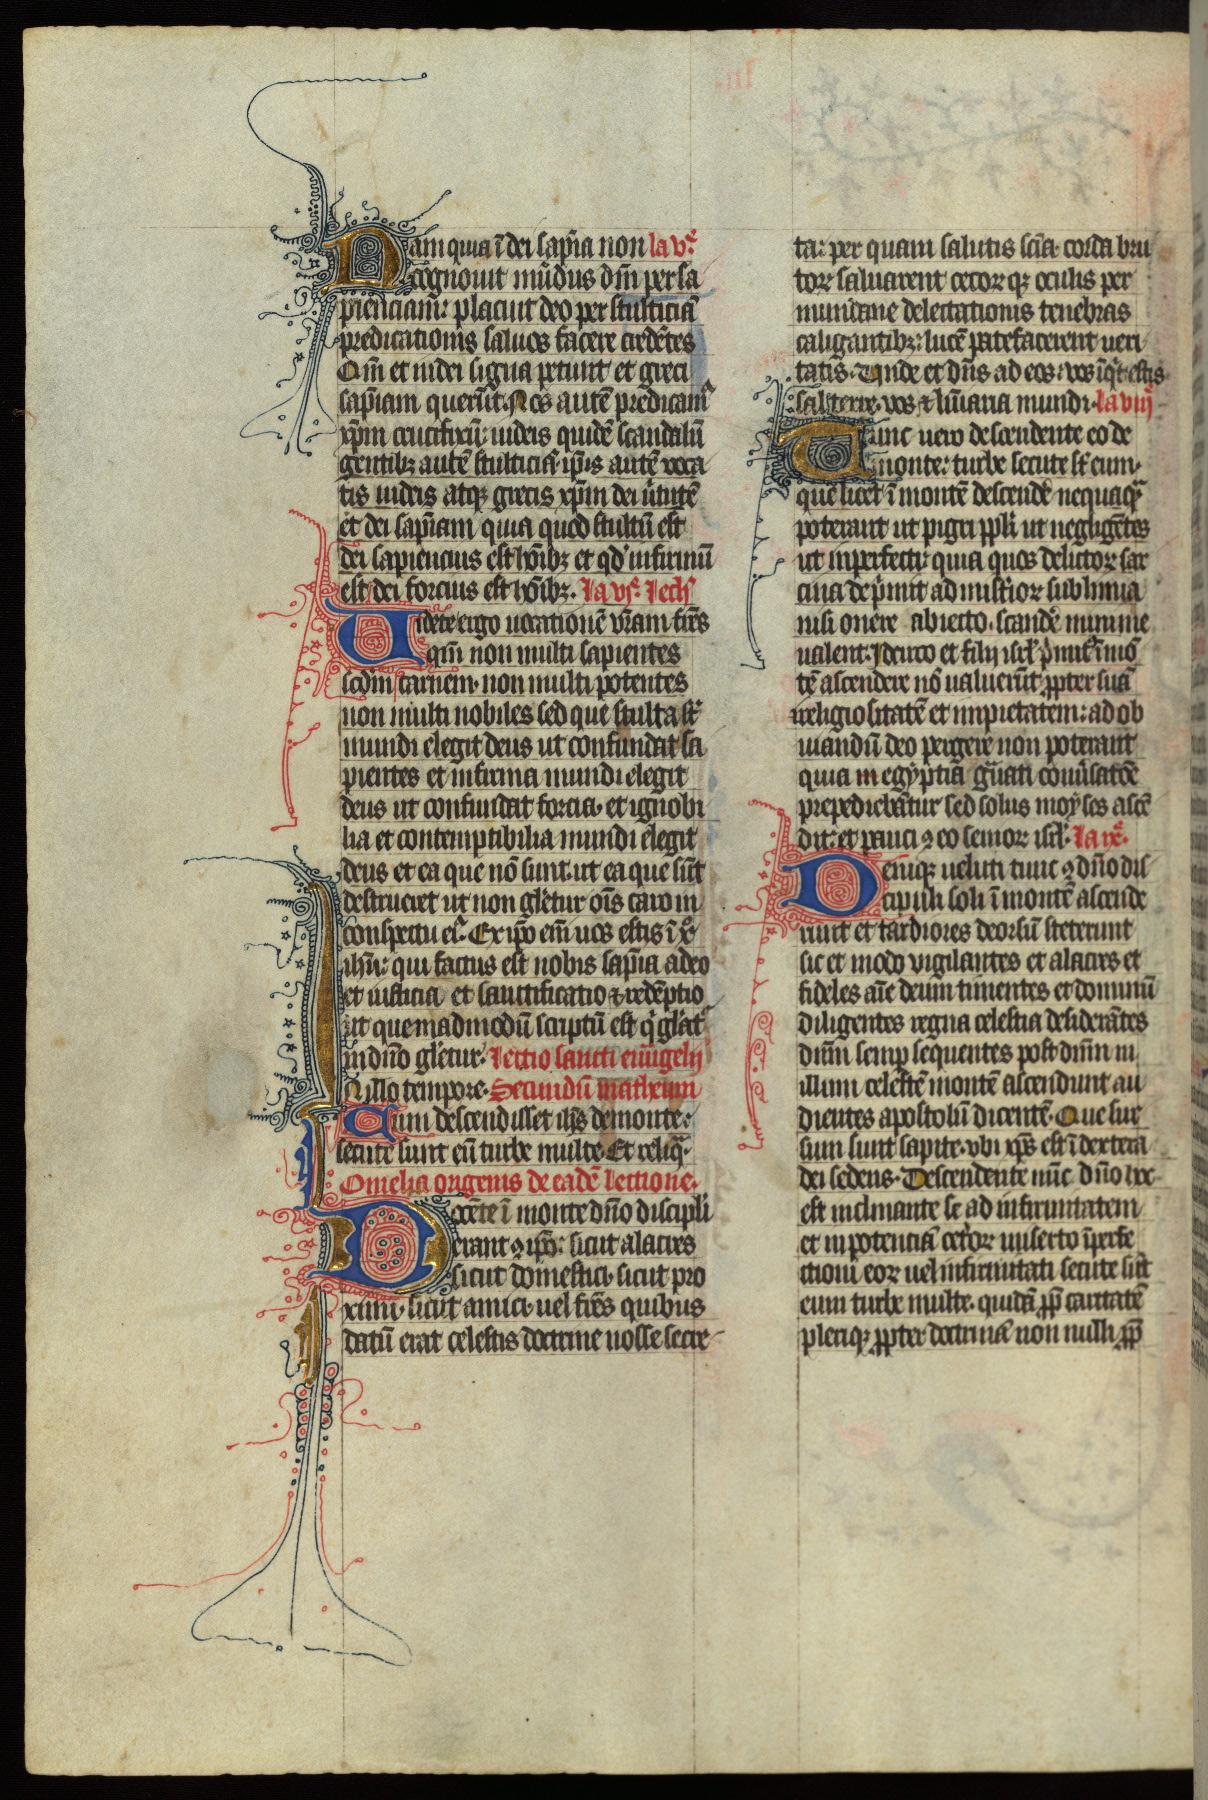 Nam quia ĩ dei sap̃ia non la vͤ.
cognouit mũdus dm̃ per sa
pienciam: placuit deo per stulticiã
predicationis saluos facere credẽtes
Qm̃ et iudei signa petunt et greci
sap̃iam querũt. Nos autẽ predicamꝰ
xp̃m crucifixũ: iudeis quidẽ scandalũ
gentibꝫ autẽ stulticiã. ip̃is autẽ voca
tis iudeis atqꝫ grecis xp̃m dei ũtutẽ
et dei sap̃iam quia quod stultũ est
dei sapiencius est hõibꝫ et qd̾ infirmũ
est dei forcius est hõibꝫ.
Uidete ergo uocationẽ vr̃am fr̃es
qm̃ non multi sapientes
scdm̃ carnem. non multi potentes
non multi nobiles sed que stulta st̃
mundi elegit deus ut confundat sa
pientes et infirma mundi elegit
deus ut confundat forcia. et ignobi
lia et contemptibilia mundi elegit
deus et ea que nõ sunt. ut ea que sũt
destrueret ut non gl̃etur oĩs caro in
conspectu eiꝰ. Ex ip̃o em̃ uos estis ĩ xͦ
ihũ: qui factus est nobis sap̃ia a deo
et iusticia et sanctificatio ⁊ redẽptio
ut quemadmodũ scriptũ est q̾ gl̃atͬ
in dño gl̃etur. Lectio sancti euũgelij
In illo tempore. Secundũ matheum
Cum descendisset ihs̃ de monte:
secute sunt eũ turbe multe. Et reliqͣ.
Omelia origenis de eadẽ lectione.
Docẽte ĩ monte dño discipli
erant ꝯ ip̃o: sicut alacres
sicut domestici. sicut pro
ximi. sicut amici. uel fr̃es quibus
datũ erat celestis doctrine nosse secre
ta: per quam salutis scĩa corda bru
toꝝ saluarent cecoꝝ qꝫ oculis per
mundane delectationis tenebras
caligantibꝫ: lucẽ patefacerent ueri
tatis. Unde et dñs ad eos: vos ĩqͥt estis
sal terre. vos ⁊ lũiaria mundi.
Tunc uero descendente eo de
monte: turbe secute st̃ eum.
que licet ĩ montẽ descendẽ nequaqͣ
poterant ut pigri ppl̃i ut negligẽtes
ut inperfecti: quia quos delictoꝝ sar
cina dep̾mit ad misterioꝝ sublimia
nisi onere abiecto. scandẽ minime
ualent. Idcirco et filij isrl̃ p̾mit̾ ĩ mõ
tẽ ascendere nõ ualuerũt ꝓpter suã
religiositatẽ et impietatem: ad ob
uiandũ deo pergere non poterant
quia in egyptiã gũati conũsatõe
prepediebãtur sed solus moyses ascẽ
dit: et pauci ꝯ eo senioꝝ isrl̃. la ixͤ.
Deniqꝫ veluti tunc ꝯ dño dis
cipuli soli ĩ montẽ ascende
runt et tardiores deorsũ steterunt
sic et modo vigilantes et alacres et
fideles aĩe deum timentes et dominũ
diligentes regna celestia desiderãtes
dnm̃ semp̱ sequentes post dnm̃ in
illum celestẽ montẽ ascendunt au
dientes apostolũ dicentẽ. Que sur
sum sunt sapite. vbi xp̃s est ĩ dextera
dei sedens. Descendente nũc dño hoc
est inclinante se ad infirmitatem
et inpotenciã ceteroꝝ miserto ĩperfe
ctioni eoꝝ uel infirmitati secute sũt
eum turbe multe. quidã ꝓp̃ caritatẽ
pleriqꝫ ꝓpter doctrinã non nulli ꝓp̃